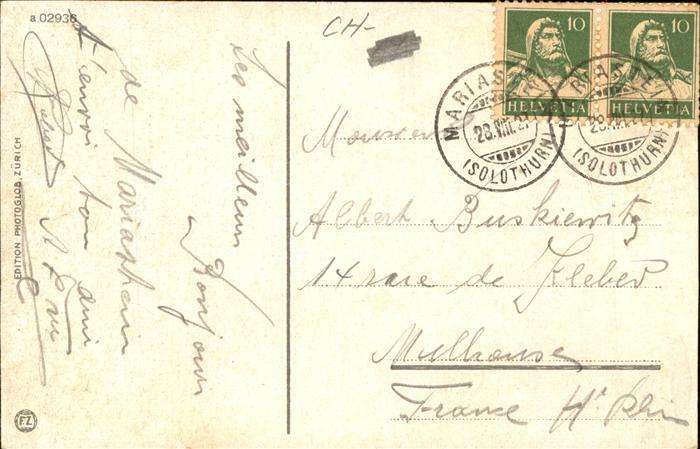 a 02936
CH-
10 10
HELVETIA HELVETIA
MARIASTEIN
28.VIII.2
(SOLOTHURN)
MARIASTEIN
28.VIII.2
(SOLOTHURN)
Les meilleurs
Bonjours
de Mariastein
t'envoi ton ami
EDITION PHOTOGLOB, ZÜRICH
PZ
Monsieur
Albert Buskiewitz
14 rue de Kleber
Mulhouse
France Ht Rhin